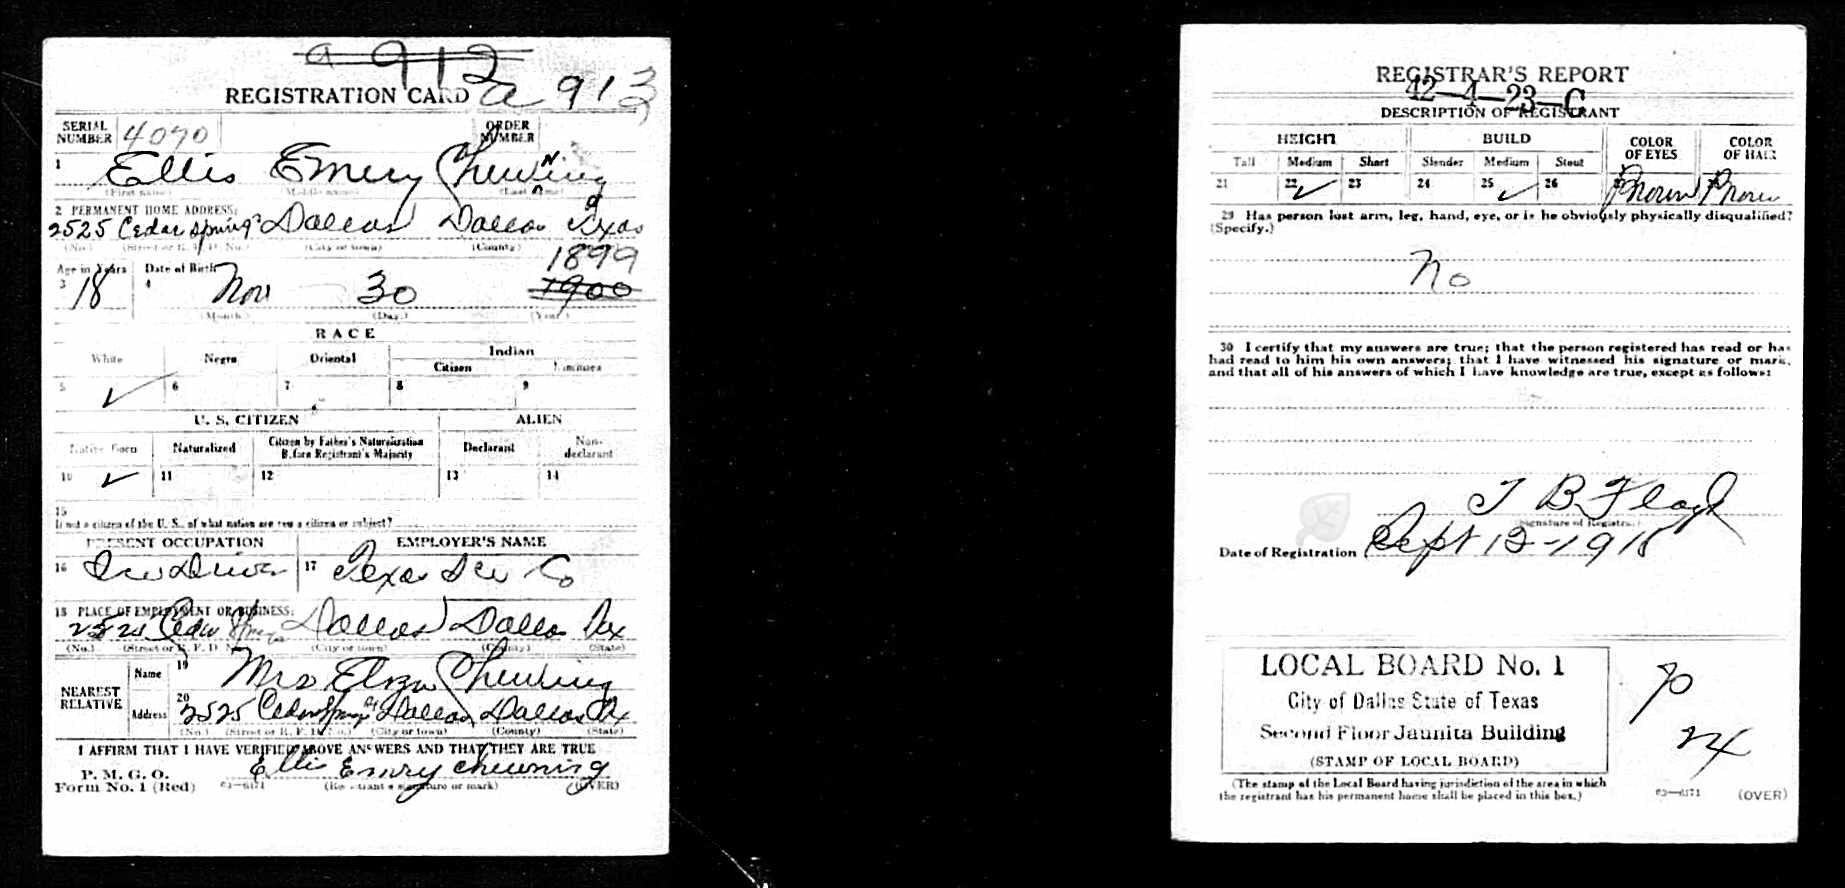 a 912
REGISTRATION CARD a 913
SERIAL NUMBER 4090 ORDER NUMBER
1 Ellis Emery Chewning
(First name) (Middle name) (Last name)
2 PERMANENT HOME ADDRESS:
2525 Cedar Spring Dallas Dallas Texas
(No.) (Street or R. F. D. No.) (City or town) (County)
Age in Years Date of Birth 1899
3 18 4 Nov 30 1900
(Month.) (Day.) (Year.)
RACE
White Negro Oriental Indian
Citizen
5 ✓ 6 7 8 9
U. S. CITIZEN ALIEN
Native Born Naturalized Citizen by Father's Naturalization Before Registrant's Majority Declarant Non-declarant
10 ✓ 11 12 13 14
15
If not a citizen of the U. S., of what nation are you a citizen or subject?
PRESENT OCCUPATION EMPLOYER'S NAME
16 Ice Driver 17 Texas Ice Co
18 PLACE OF EMPLOYMENT OR BUSINESS:
Cedar Springs Dallas Dallas Tex
(No.) (Street or R. F. D. No.) (City or town) (County) (State)
NEAREST RELATIVE Name 19 Mrs Chewning
Address 20 2525 Cedar Spring Dallas Dallas Tx
(No.) (Street or R. F. D. No.) (City or town) (County) (State)
I AFFIRM THAT I HAVE VERIFIED ABOVE ANSWERS AND THAT THEY ARE TRUE
P. M. G. O.
Form No. 1 (Red) 03—6171 Ellis Emry Chewning
(Registrant's signature or mark) (OVER)
REGISTRAR'S REPORT
42-4-23-C
DESCRIPTION OF REGISTRANT
HEIGHT BUILD COLOR OF EYES COLOR OF HAIR
Tall Medium Short Slender Medium Stout
21 22 ✓ 23 24 25 ✓ 26 27 Brown 28 Brown
29 Has person lost arm, leg, hand, eye, or is he obviously physically disqualified?
(Specify.)
No
30 I certify that my answers are true; that the person registered has read or has
had read to him his own answers; that I have witnessed his signature or mark,
and that all of his answers of which I have knowledge are true, except as follows:
T B Floyd
(Signature of Registrar)
Date of Registration Sept 12-1918
LOCAL BOARD No. 1
City of Dallas State of Texas
Second Floor Jaunita Building
(STAMP OF LOCAL BOARD)
(The stamp of the Local Board having jurisdiction of the area in which
the registrant has his permanent home shall be placed in this box.)
03—6171 (OVER)